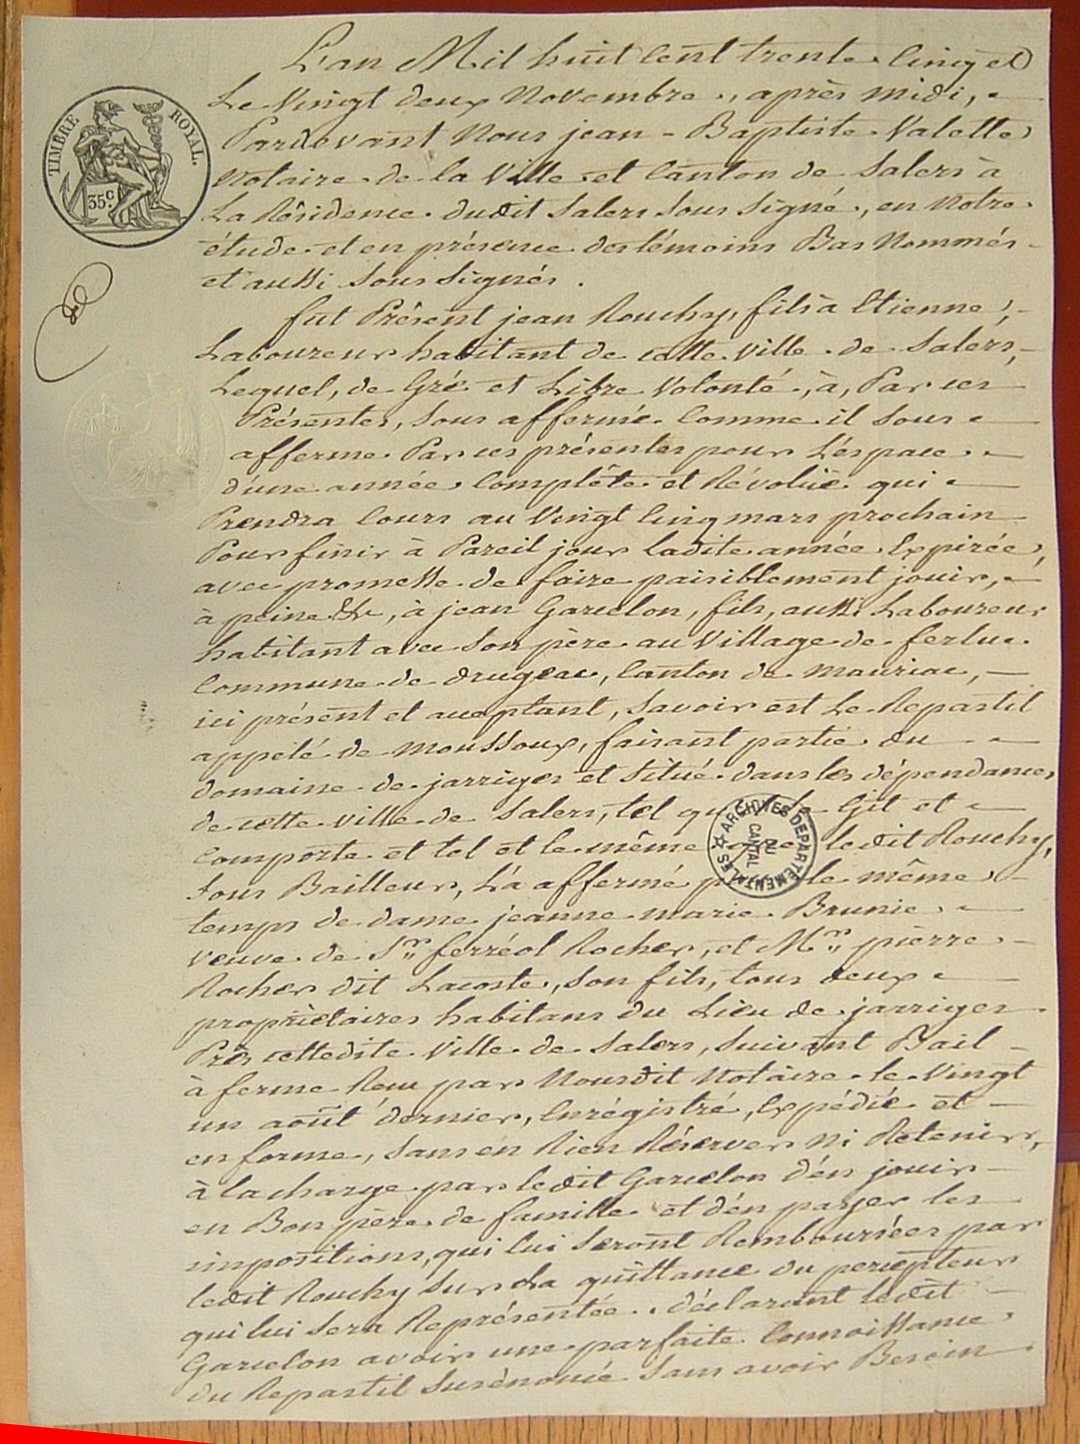 TIMBRE ROYAL.
35 c.
L'an Mil huit Cent trente Cinq et
Le Vingt deux Novembre, après midi,
Pardevant Nous jean-Baptiste Valette
Notaire de la Ville et Canton de Salers à
La Résidence dudit Salers Sous Signé, en Notre
étude et en présence des témoins Bas Nommés
et aussi Sous Signés.
fut Présent jean Rouchy, fils à Etienne,
Laboureur habitant de cette Ville de Salers,
Lequel, de Gré et Libre Volonté, à, Par ces
Présentes, Sous affermé Comme il Sous
afferme Par ces présentes pour L'éspace
d'une année Complête et Révolüe qui
Prendra Cours au Vingt Cinq mars prochain
Pour finir à Pareil jour ladite année Expirée,
avec promesse de faire paisiblement jouir,
à peine &c, à jean Garcelon, fils, aussi Laboureur
habitant avec Son père au Village de ferluc
Commune de drugeac, Canton de mauriac,
ici présent et acceptant, Savoir est Le Repastil
appelé de moussoux, faisant partie du
domaine de jarriges et Situé dans les dépendances
de cette Ville de Salers, tel qu'il Se Git et
Comporte et tel et le même que ledit Rouchy,
Sous Bailleur, L'a affermé pour le même
temps de dame jeanne marie Brunie
veuve de Sr. ferréol Rocher, et Mr. pierre
Rocher dit Lacoste, Son fils, tous deux
propriétaires habitans du Lieu de jarriges
Près cettedite Ville de Salers, Suivant Bail
à ferme Reçu par Nousdit Notaire le Vingt
un août dernier, Enrégistré, Expédié et
en forme, Sans en Rien Réserver Ni Retenir,
à la charge par ledit Garcelon d'en jouir
en Bon père de famille et d'en payer les
impositions, qui lui Seront Remboursées par
ledit Rouchy Sur La quittance du percepteur
qui lui Sera Représentée. déclarant ledit
Garcelon avoir une parfaite Connoissance
du Repastil Susénoncé Sans avoir Besoin
ARCHIVES DEPARTEMENTALES
DU
CANTAL